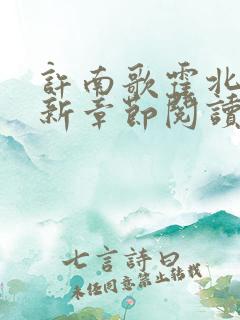 許南歌霍北
新章節閱讀
七言詩曰
未任同意禁止轉載